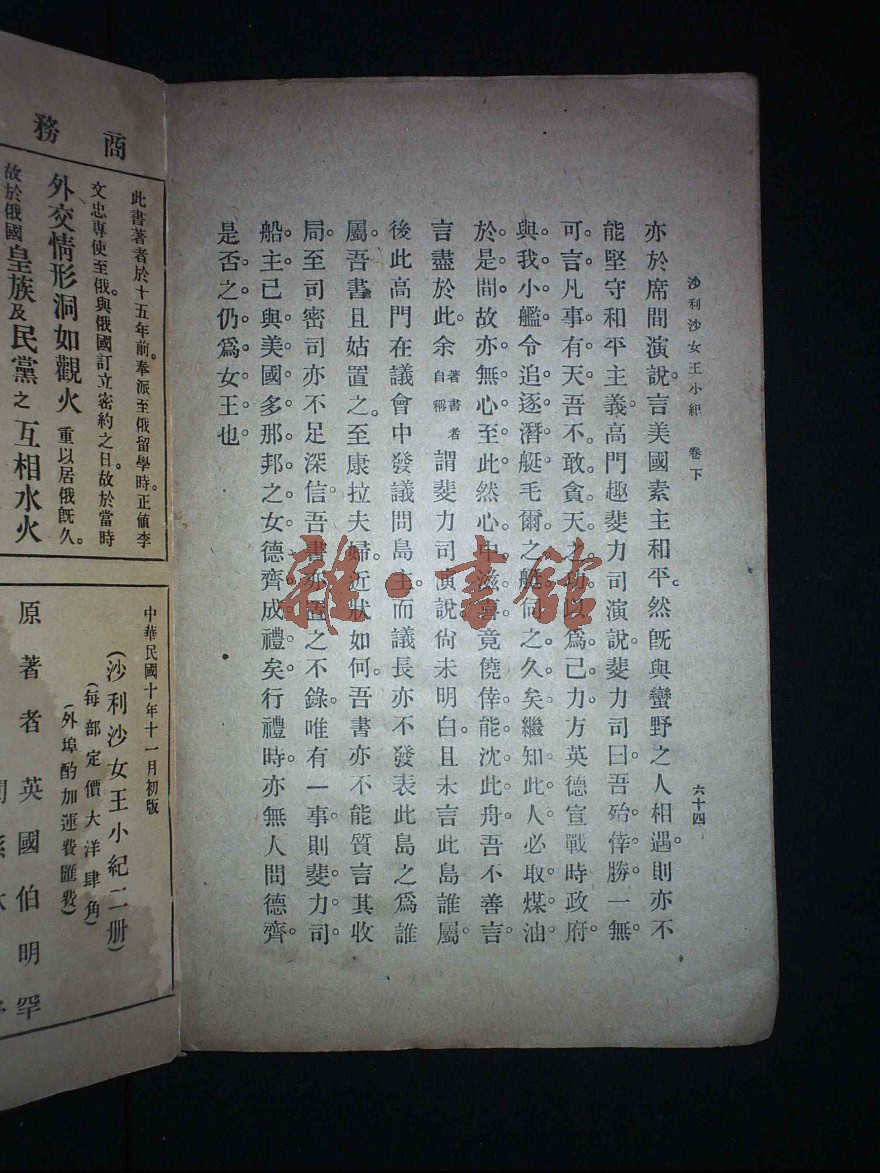 沙利沙女王小紀 卷下 六十四
亦於席間演說。言美國素主和平。然既與蠻野之人相遇。則亦不
能堅守和平主義。高門趣斐力司演說。斐力司曰。吾殆倖勝。一無
可言。凡事有天。吾不敢貪天之功以爲己力。方英德宣戰時。政府
與我小艦。令追逐潛艇。毛爾之艇伺之久矣。繼知此人必取煤油
於是間。故亦無心至此。然心中滋喜。竟僥倖能沈此舟。吾不善言。
言盡於此。余著書者自稱謂斐力司演說。尙未明白。且未言此島誰屬。
後此高門在議會中發議。問島主。而議長亦不發表此島之爲誰
屬。吾書且姑置之。至康拉夫婦。近狀如何。吾書亦不能質言其收
局。至司密司亦不足深信。吾書亦置之不錄。唯有一事。則斐力司
船主。已與美國多那邦之女德齊成禮矣。行禮時。亦無人問德齊
是否之仍爲女王也。
雜·書館
商務
此書著者於十五年前。奉派至俄留學時。正値李
文忠專使至俄。與俄國訂立密約之日。故於當時
外交情形洞如觀火 重以居俄旣久。
故於俄國皇族及民黨之互相水火
中華民國十年十一月初版
(沙利沙女王小紀二册)
(每部定價大洋肆角)
(外埠酌加運費匯費)
原著者 英國伯明罕